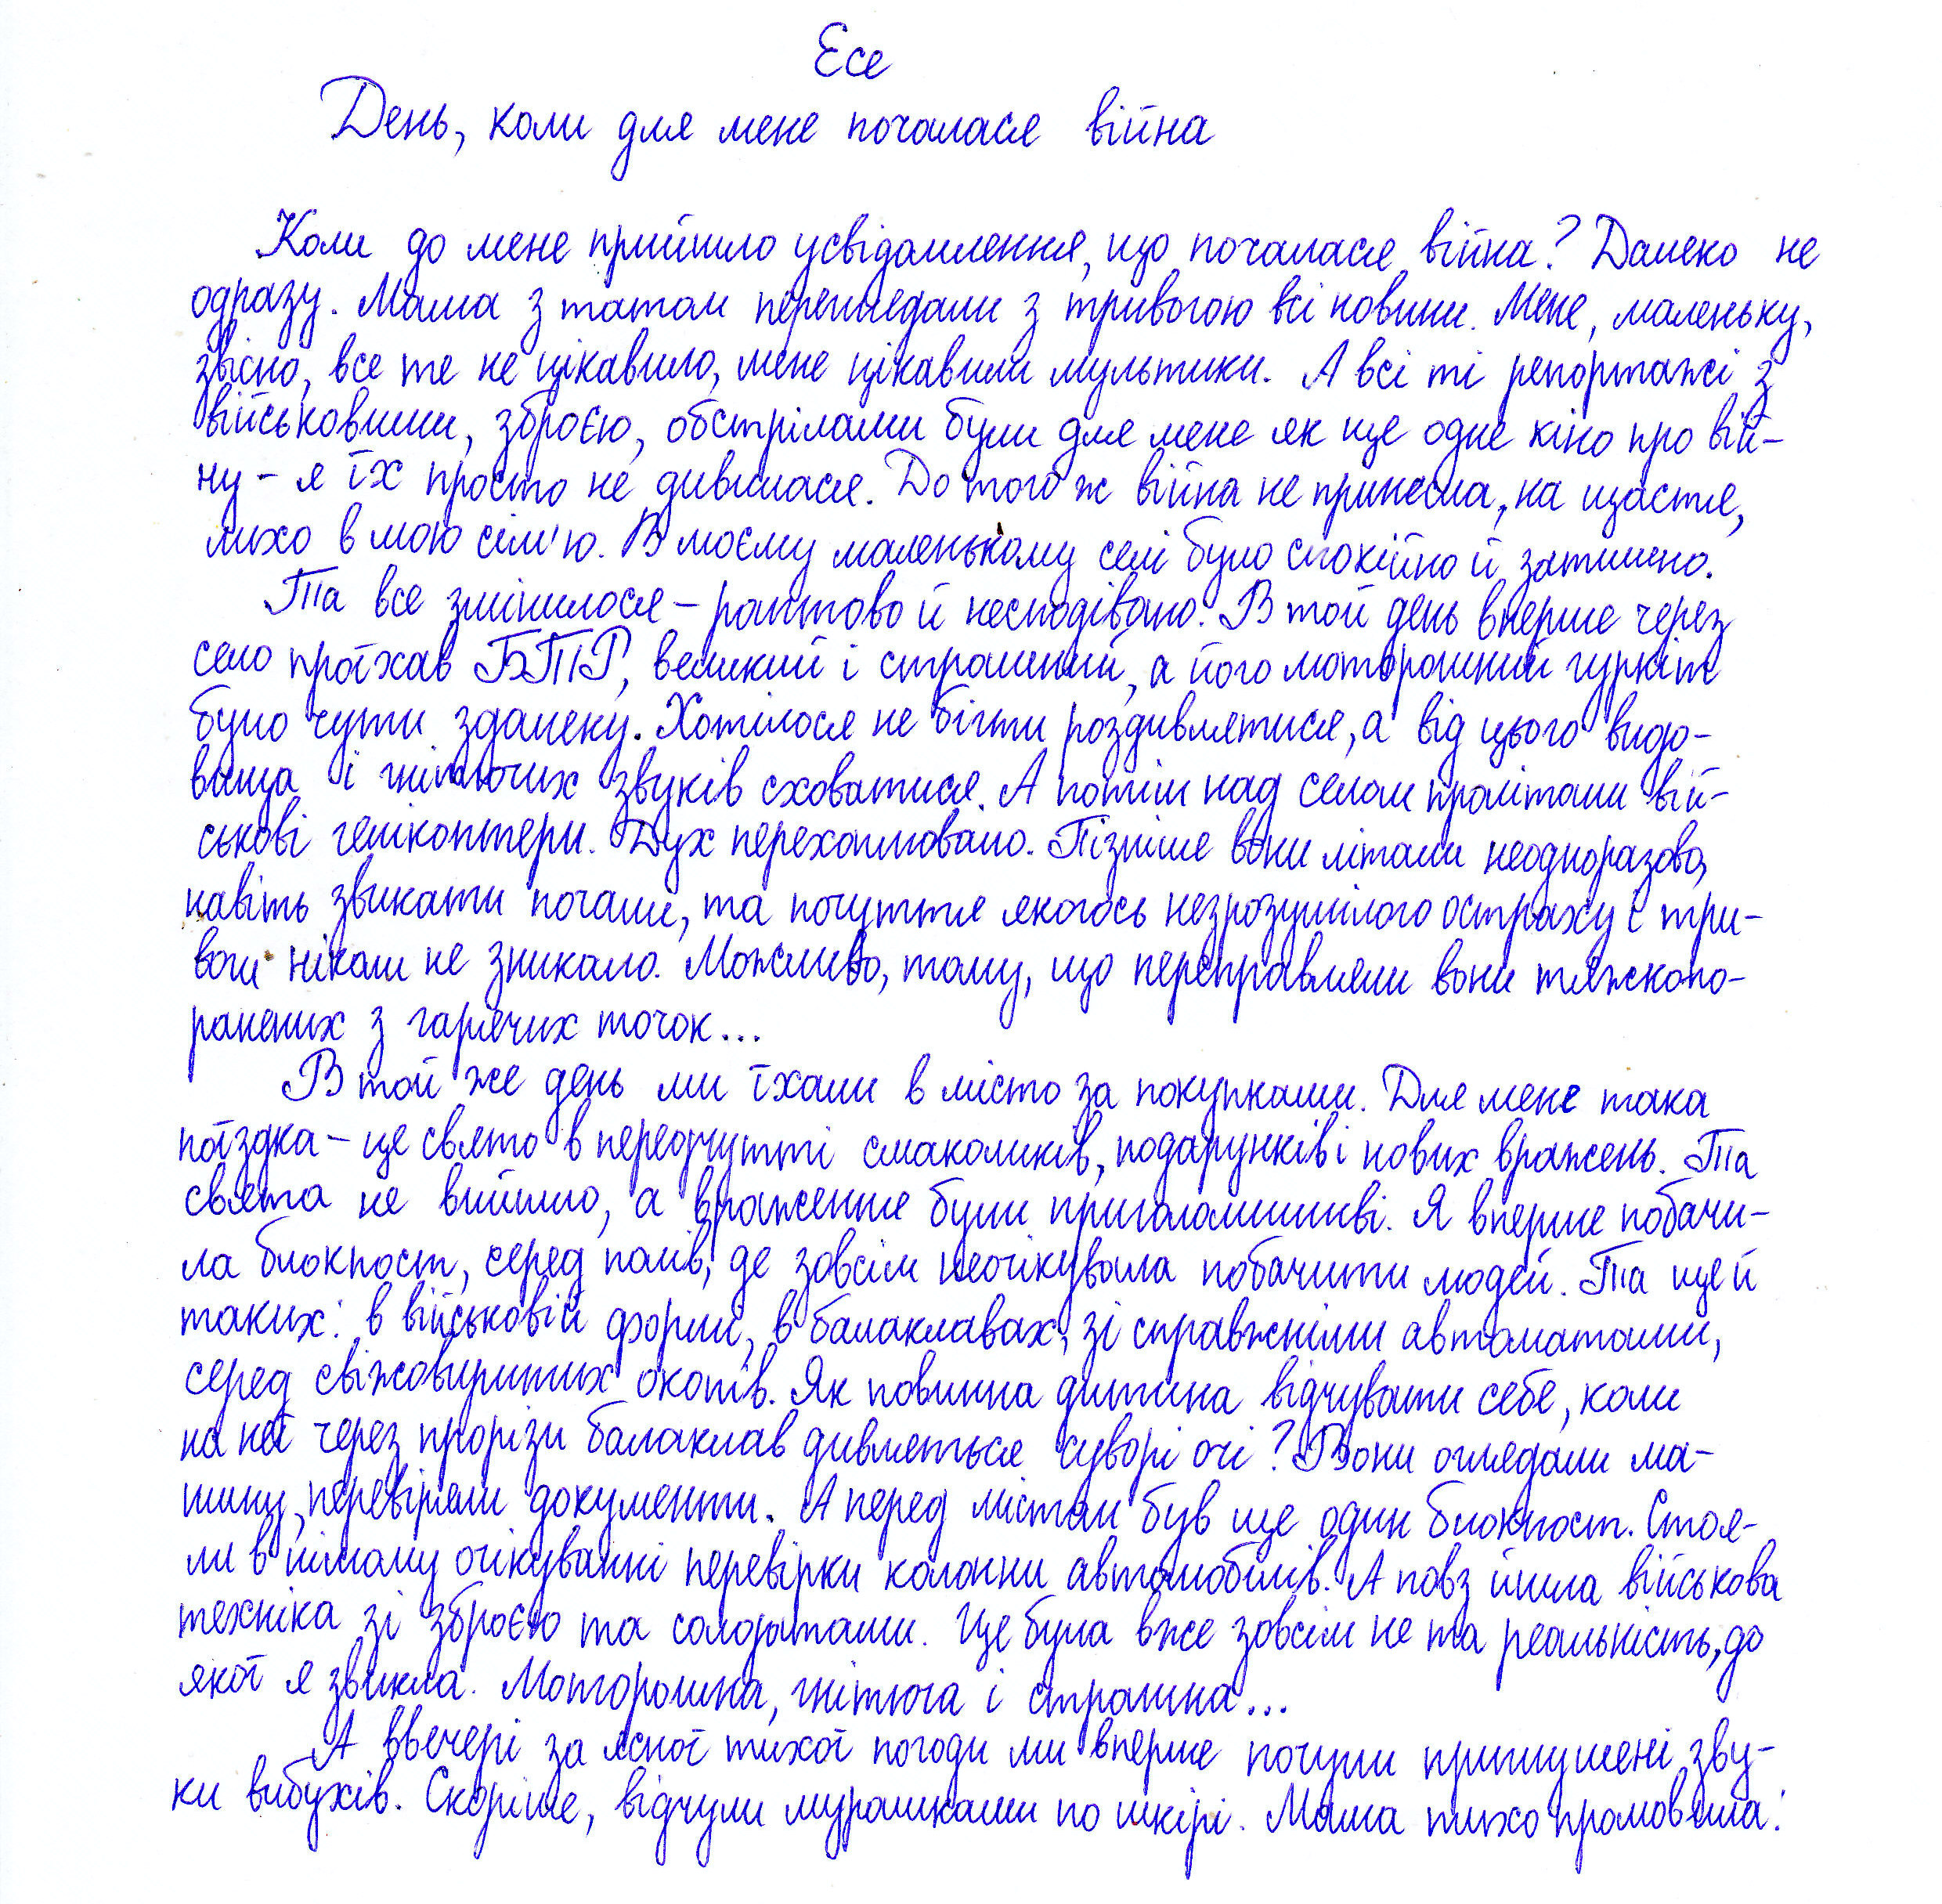 Есе
День, коли для мене почалася війна
Коли до мене прийшло усвідомлення, що почалася війна? Далеко не
одразу. Мама з татом переглядали з тривогою всі новини. Мене, маленьку,
звісно, все те не цікавило, мене цікавили мультики. А всі ті репортажі з
військовими, зброєю, обстрілами були для мене як ще одне кіно про вій-
ну – я їх просто не дивилася. До того ж війна не принесла, на щастя,
лихо в мою сім'ю. В моєму маленькому селі було спокійно й затишно.
Та все змінилося – раптово й несподівано. В той день вперше через
село проїхав БТР, великий і страшний, а його моторошний гуркіт
було чути здалеку. Хотілося не бігти роздивлятися, а від цього видо-
вища і гнітючих звуків сховатися. А потім над селом пролітали вій-
ськові гелікоптери. Дух перехоплювало. Пізніше вони літали неодноразово,
навіть звикати почали, та почуття якогось незрозумілого остраху і три-
воги ніколи не зникало. Можливо, тому, що переправляли вони тяжкопо-
ранених з гарячих точок...
В той же день ми їхали в місто за покупками. Для мене така
поїздка – це свято в передчутті смаколиків, подарунків і нових вражень. Та
свята не вийшло, а враження були приголомшливі. Я вперше побачи-
ла блокпост, серед полів, де зовсім неочікувала побачити людей. Та ще й
таких: в військовій формі, в балаклавах, зі справжніми автоматами,
серед свіжовиритих окопів. Як повинна дитина відчувати себе, коли
на неї через прорізи балаклав дивляться суворі очі? Вони оглядали ма-
шину, перевіряли документи. А перед містом був ще один блокпост. Стоя-
ли в німому очікуванні перевірки колонни автомобілів. А повз йшла військова
техніка зі зброєю та солдатами. Це була вже зовсім не та реальність, до
якої я звикла. Моторошна, гнітюча і страшна...
А ввечері за ясної тихої погоди ми вперше почули приглушені зву-
ки вибухів. Скоріше, відчули мурашками по шкірі. Мама тихо промовила: